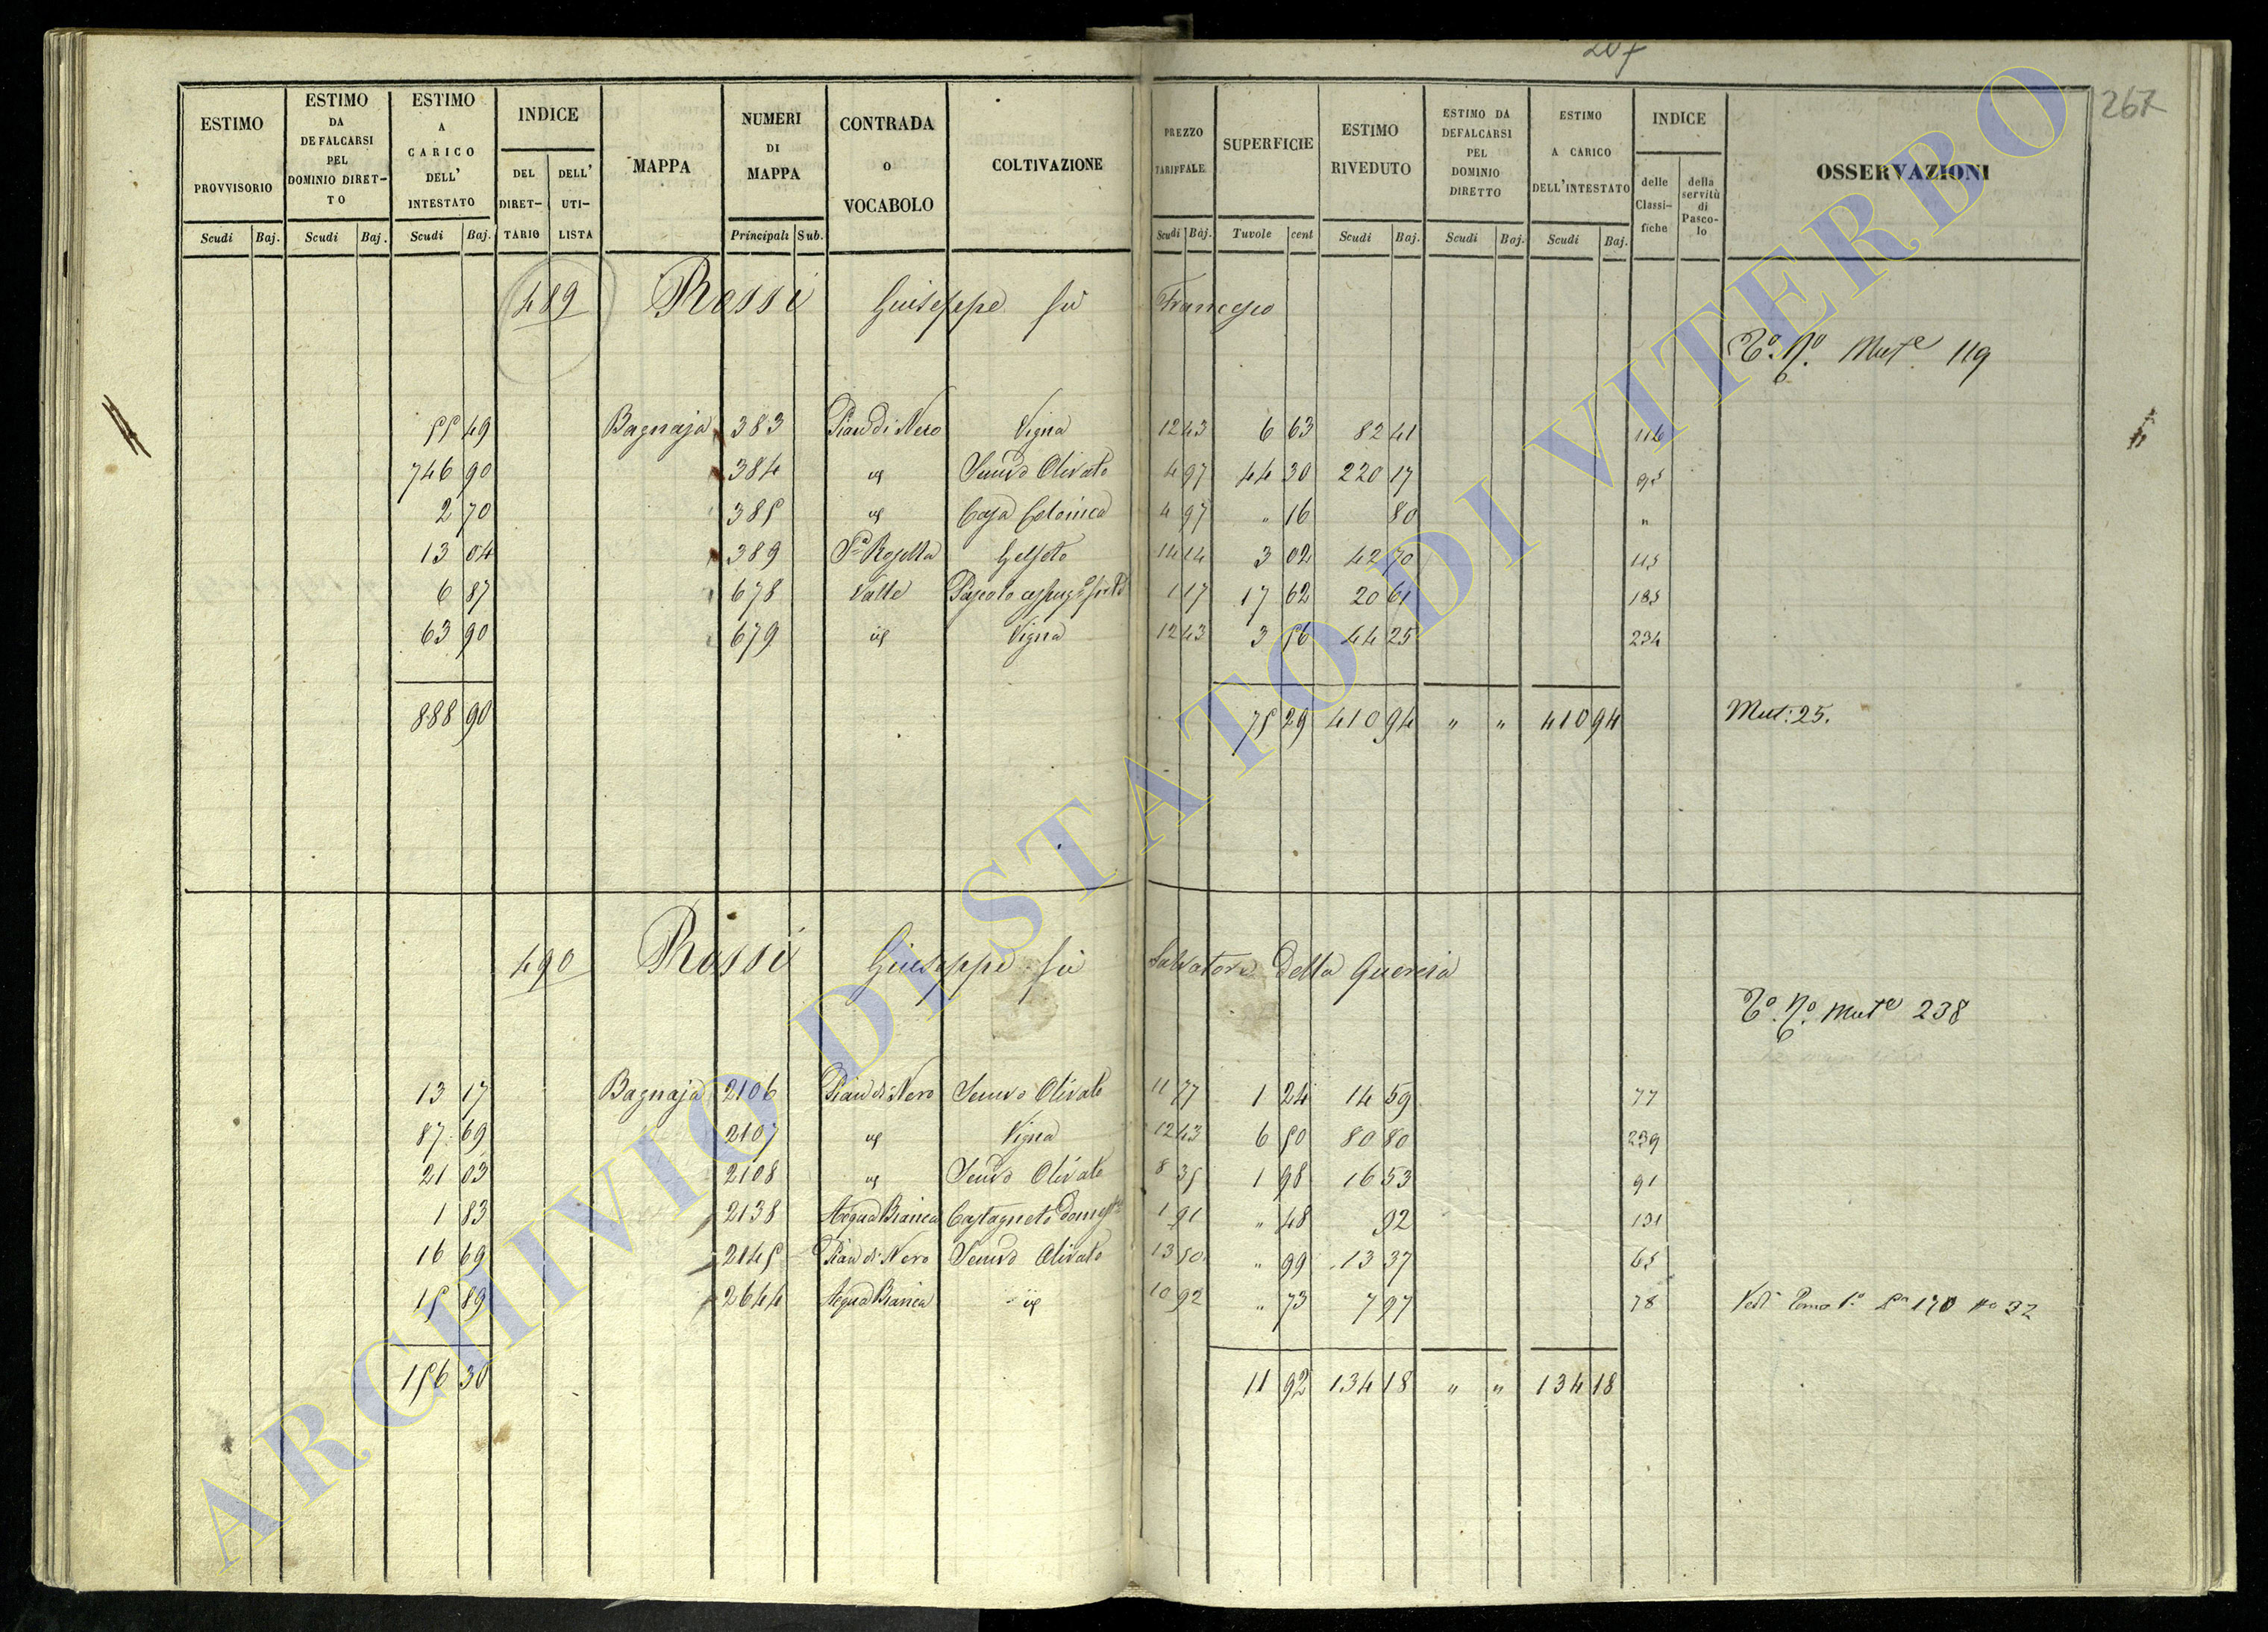 267
267
ESTIMO PROVVISORIO | ESTIMO DA DEFALCARSI PEL DOMINIO DIRET-TO | ESTIMO A CARICO DELL' INTESTATO | INDICE DEL DIRET-TARIO | DELL' UTI-LISTA | MAPPA | NUMERI DI MAPPA | CONTRADA o VOCABOLO | COLTIVAZIONE | PREZZO TARIFFALE | SUPERFICIE | ESTIMO RIVEDUTO | ESTIMO DA DEFALCARSI PEL DOMINIO DIRETTO | ESTIMO A CARICO DELL'INTESTATO | INDICE delle Classi-fiche | della servitù di Pasco-lo | OSSERVAZIONI
Scudi Baj. Scudi Baj. Scudi Baj. Principali Sub. Scudi Baj. Tavole cent Scudi Baj. Scudi Baj. Scudi Baj.
489 Rossi Giuseppe fù Francesco
Tº. Nº. Mutᵉ 119
55 49 Bagnaja 383 Pian di Nero Vigna 12 43 6 63 82 41 116
746 90 384 id Semvo Olivato 4 97 44 30 220 17 95
2 70 385 id Casa Colonica 4 97 " 16 80 "
13 04 389 Gelseto 14 14 3 02 42 70 113
6 87 678 Valle Pascolo 1 17 17 62 20 61 183
63 90 679 id Vigna 12 43 3 56 44 25 234
888 90 75 29 410 94 " " 410 94 Mut: 25.
490 Rossi Giuseppe fù Salvatore della Quercia
Tº. Nº. Mutᵉ 238
13 17 Bagnaja 2106 Pian di Nero Semvo Olivato 11 77 1 24 14 59 77
87 69 2107 id Vigna 12 43 6 50 80 80 239
21 03 2108 id Semvo Olivato 8 35 1 98 16 53 91
1 83 2138 Acqua Bianca Castagneto Domesᵗº 1 91 " 48 92 131
16 69 2145 Pian di Nero Semvo Olivato 13 50 " 99 13 37 65
15 89 2644 Acqua Bianca id 10 92 " 73 7 97 78 Vedi Tomo 1º 170 32
156 30 11 92 134 18 " " 134 18
ARCHIVIO DI STATO DI VITERBO